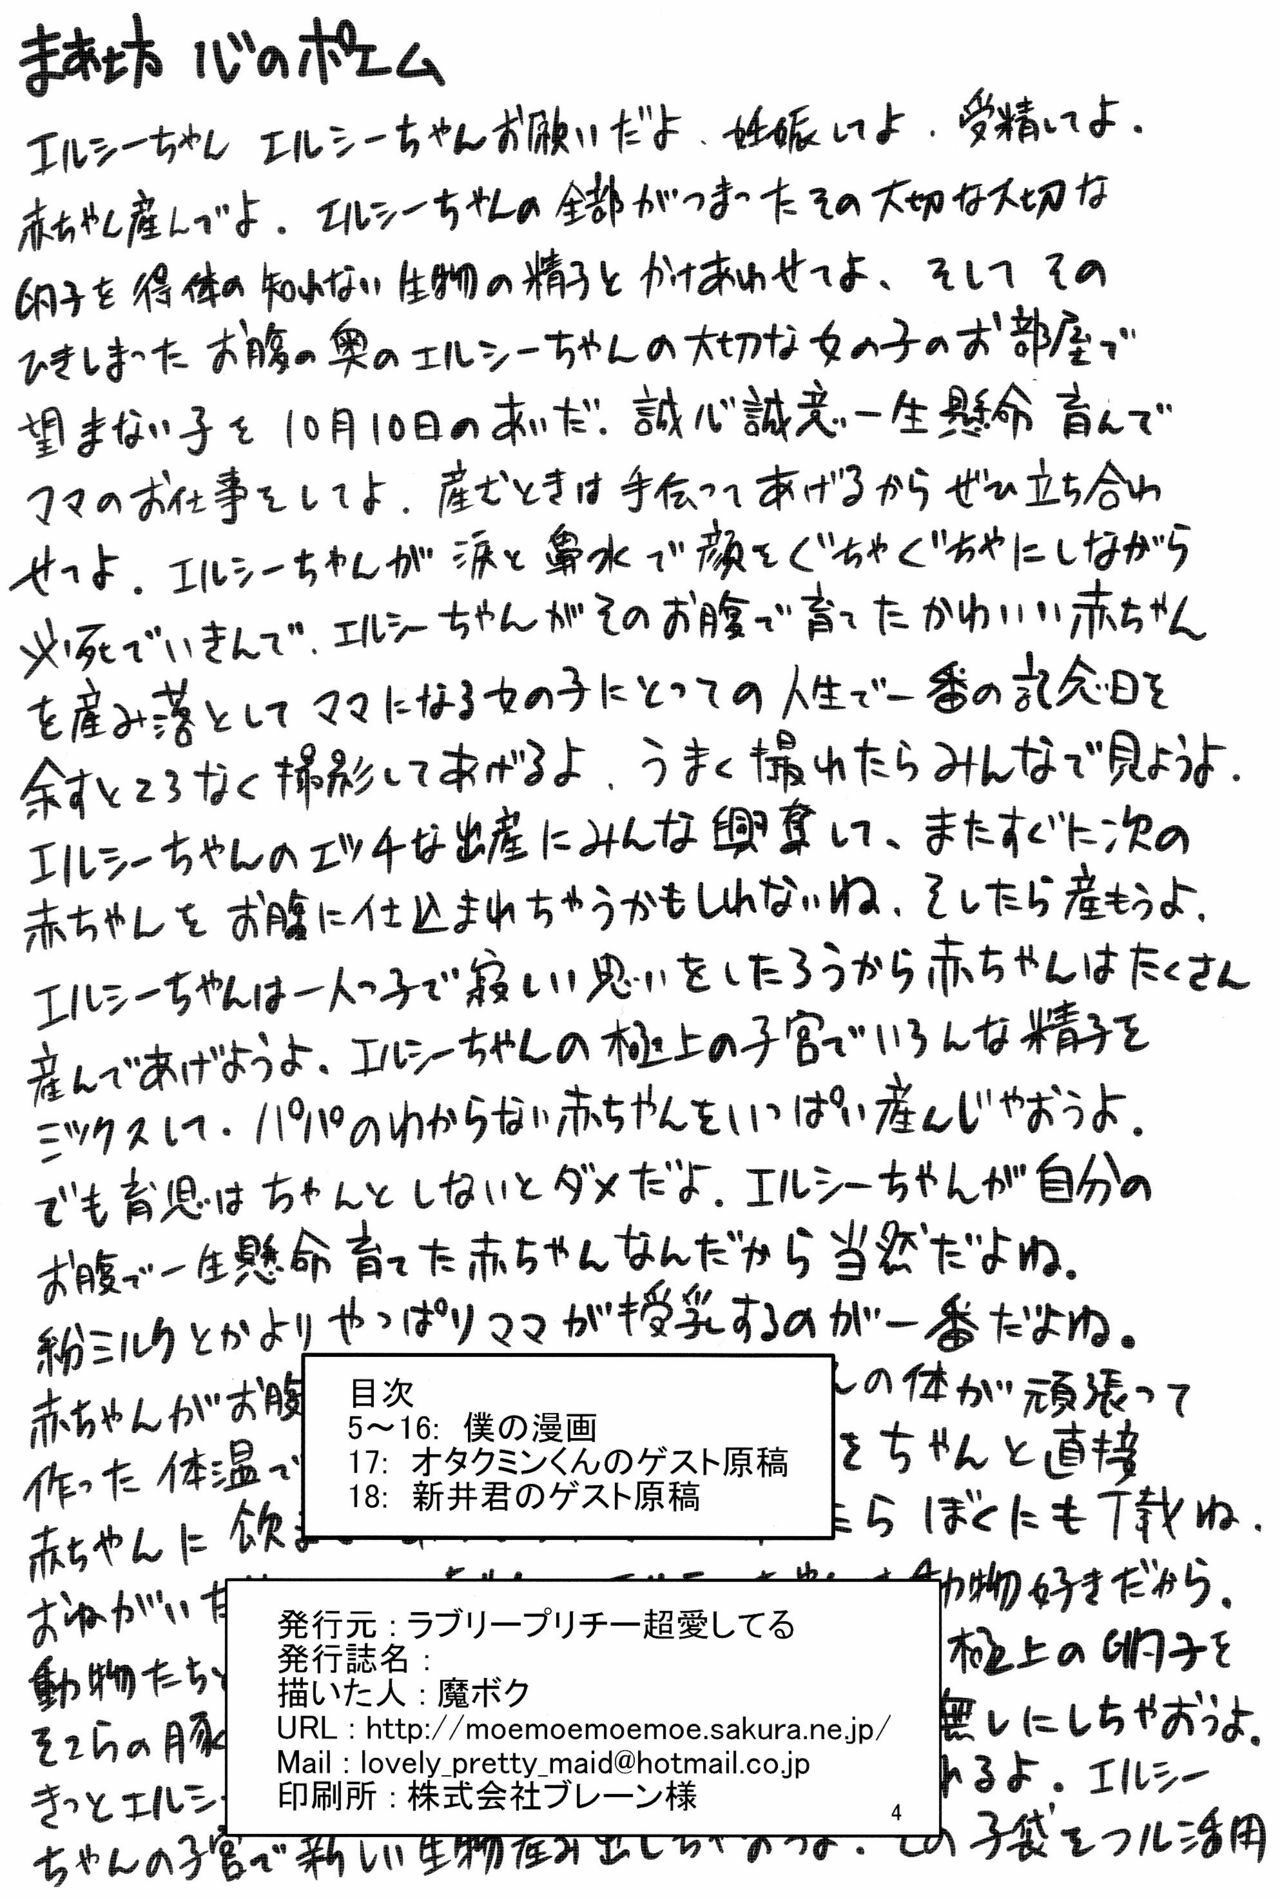 まあ坊 心のポエム
エルシーちゃん エルシーちゃんお願いだよ、妊娠してよ、受精してよ。
赤ちゃん産んでよ。エルシーちゃんの全部がつまったその大切な大切な
卵子を得体の知れない生物の精子とかけあわせてよ、そしてその
ひきしまったお腹の奥のエルシーちゃんの大切な女の子のお部屋で
望まない子を10月10日のあいだ、誠心誠意一生懸命育んで
ママのお仕事をしてよ。産むときは手伝ってあげるからぜひ立ち合わ
せてよ。エルシーちゃんが涙と鼻水で顔をぐちゃぐちゃにしながら
必死でいきんで、エルシーちゃんがそのお腹で育てたかわいい赤ちゃん
を産み落としてママになる女の子にとっての人生で一番の記念日を
余すところなく撮影してあげるよ、うまく撮れたらみんなで見ようよ。
エルシーちゃんのエッチな出産にみんな興奮して、またすぐに次の
赤ちゃんをお腹に仕込まれちゃうかもしれないね、そしたら産もうよ、
エルシーちゃんは一人っ子で寂しい思いをしたろうから赤ちゃんはたくさん
産んであげようよ、エルシーちゃんの極上の子宮でいろんな精子を
ミックスして、パパのわからない赤ちゃんをいっぱい産んじゃおうよ。
でも育児はちゃんとしないとダメだよ。エルシーちゃんが自分の
お腹で一生懸命育てた赤ちゃんなんだから当然だよね。
粉ミルクとかよりやっぱりママが授乳するのが一番だよね。
赤ちゃんがお腹 んの体が頑張って
作った体温で をちゃんと直接
赤ちゃんに飲ま たらぼくにも下載ね、
おねがい 動物好きだから。
動物たちと 極上の卵子を
そこらの豚 無しにしちゃおうよ。
きっとエルシー れるよ。エルシー
ちゃんの子宮で新しい生物産み出しちゃおうよ、その子袋をフル活用
目次
5～16: 僕の漫画
17: オタクミンくんのゲスト原稿
18: 新井君のゲスト原稿
発行元：ラブリープリチー超愛してる
発行誌名：
描いた人：魔ボク
URL：http://moemoemoemoe.sakura.ne.jp/
Mail：lovely_pretty_maid@hotmail.co.jp
印刷所：株式会社ブレーン様
4